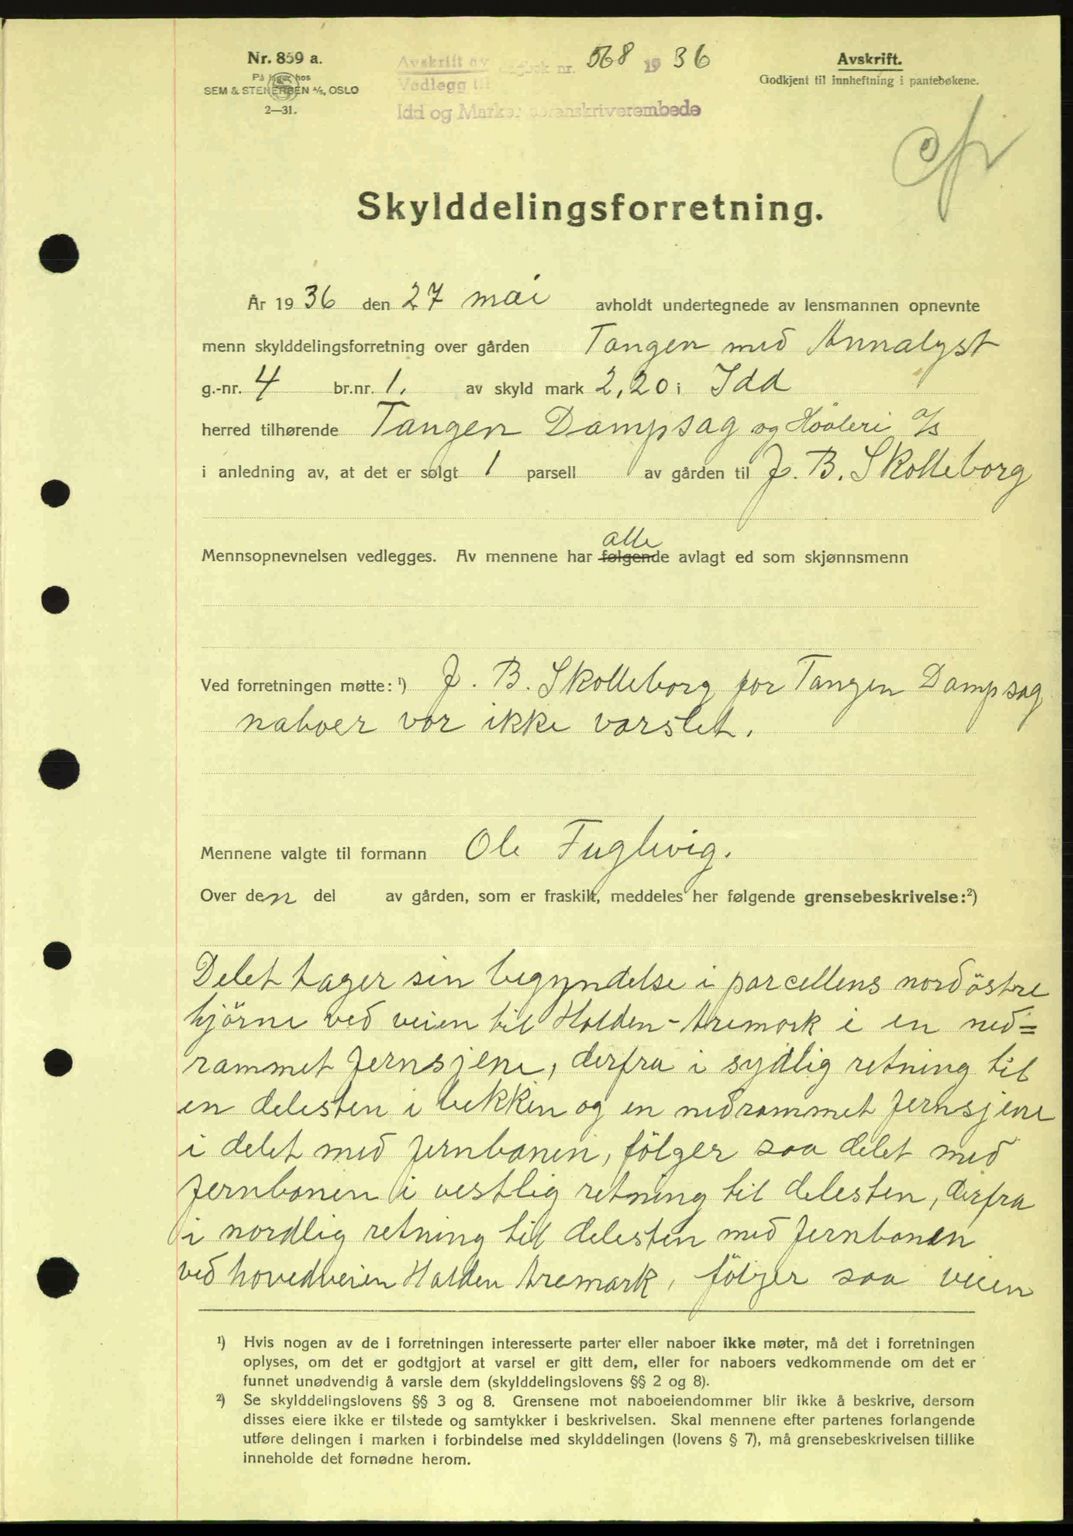 Nr. 859 a.
På lager hos
SEM & STENERSEN A/S, OSLO
2—31.
Avskrift av dagbok nr. 568 1936
Vedlegg til
Idd og Marker sorenskriverembede
Avskrift.
Godkjent til innheftning i pantebøkene.
Skylddelingsforretning.
År 1936 den 27 mai avholdt undertegnede av lensmannen opnevnte
menn skylddelingsforretning over gården Tangen med Annalyst
g.-nr. 4 br.nr. 1. av skyld mark 2,20 i Idd
herred tilhørende Tangen Dampsag og Høvleri A/S
i anledning av, at det er solgt 1 parsell av gården til J. B. Skolleborg
alle
Mennsopnevnelsen vedlegges. Av mennene har følgende avlagt ed som skjønnsmenn
Ved forretningen møtte: ¹) J. B. Skolleborg for Tangen Dampsag
naboer var ikke varslet.
Mennene valgte til formann Ole Fuglevig.
Over den del av gården, som er fraskilt, meddeles her følgende grensebeskrivelse: ²)
Delet tager sin begyndelse i parcellens nordöstre
hjörne ved veien til Halden-Aremark i en ned=
rammet Jernsjene, derfra i sydlig retning til
en delesten i bekken og en nedrammet Jernsjene
i delet med Jernbanen, fölger saa delet med
Jernbanen i vestlig retning til delesten, derfra
i nordlig retning til delesten med Jernbanen
ved hovedveien Halden Aremark, fölger saa veien
¹) Hvis nogen av de i forretningen interesserte parter eller naboer ikke møter, må det i forretningen
oplyses, om det er godtgjort at varsel er gitt dem, eller for naboers vedkommende om det er
funnet unødvendig å varsle dem (skylddelingslovens §§ 2 og 8).
²) Se skylddelingslovens §§ 3 og 8. Grensene mot naboeiendommer blir ikke å beskrive, dersom
disses eiere ikke er tilstede og samtykker i beskrivelsen. Skal mennene efter partenes forlangende
utføre delingen i marken i forbindelse med skylddelingen (lovens § 7), må grensebeskrivelsen tillike
inneholde det fornødne herom.